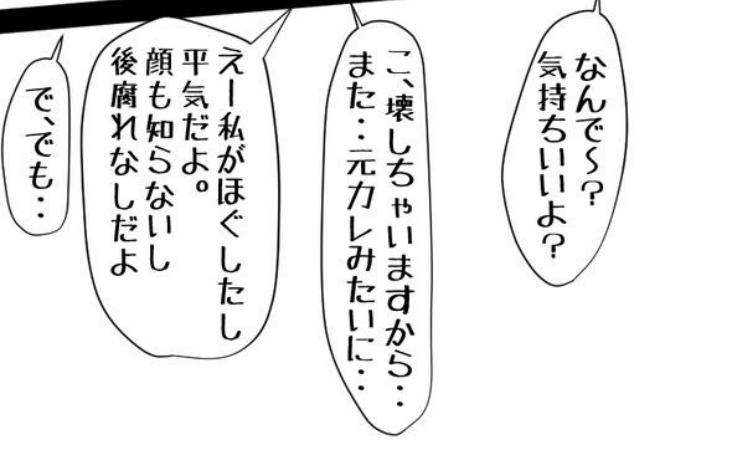 なんで～?
気持ちいいよ?
こ、壊しちゃいますから・・
また・・元カレみたいに・・
えー私がほぐしたし
平気だよ。
顔も知らないし
後腐れなしだよ
で、でも・・